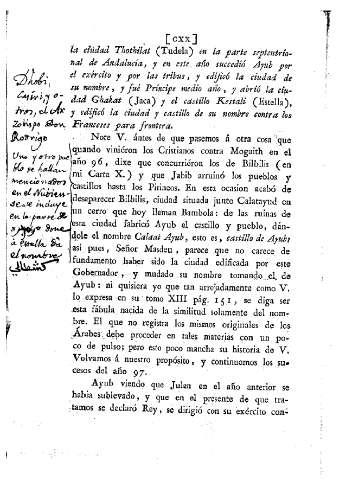 [ CXX ]
la ciudad Thothilat (Tudela) en la parte septentrio-
nal de Andalucía, y en este año succedió Ayub por
el exército y por las tribus, y edificó la ciudad de
su nombre, y fué Príncipe medio año, y abrió la ciu-
dad Ghakat (Jaca) y el castillo Kestali (Estella),
y edificó la ciudad y castillo de su nombre contra los
Franceses para frontera.
Note V. ántes de que pasemos á otra cosa que
quando viniéron los Cristianos contra Mogaith en el
año 96, dixe que concurriéron los de Bilbilis (en
mi Carta X.) y que Jabib arruinó los pueblos y
castillos hasta los Pirineos. En esta ocasion acabó de
desparecer Bilbilis, ciudad situada junto Calatayud en
un cerro que hoy llaman Bambola: de las ruinas de
esta ciudad fabricó Ayub el castillo y pueblo, dán-
dole el nombre Calaat Ayub, esto es, castillo de Ayub:
así pues, Señor Masdeu, parece que no carece de
fundamento haber sido la ciudad edificada por este
Gobernador, y mudado su nombre tomando el de
Ayub: ni quisiera yo que tan arrejadamente como V.
lo expresa en su tomo XIII pág. 151, se diga ser
esta fábula nacida de la similitud solamente del nom-
bre. El que no registra los mismos originales de los
Árabes debe proceder en tales materias con un po-
co de pulso; pero esto poco mancha su historia de V.
Volvamos á nuestro propósito, y continuemos los su-
cesos del año 97.
Ayub viendo que Julan en el año anterior se
habia sublevado, y que en el presente de que tra-
tamos se declaró Rey, se dirigió con su exército con-
Dhobi,
Casiri, y o-
tros, el Ar
Zobispo Don
Rodrigo
Uno y otro pue
blo se hallan
mencionados
en el Nubien-
se se incluye
en la parte
á Estella da
el nombre